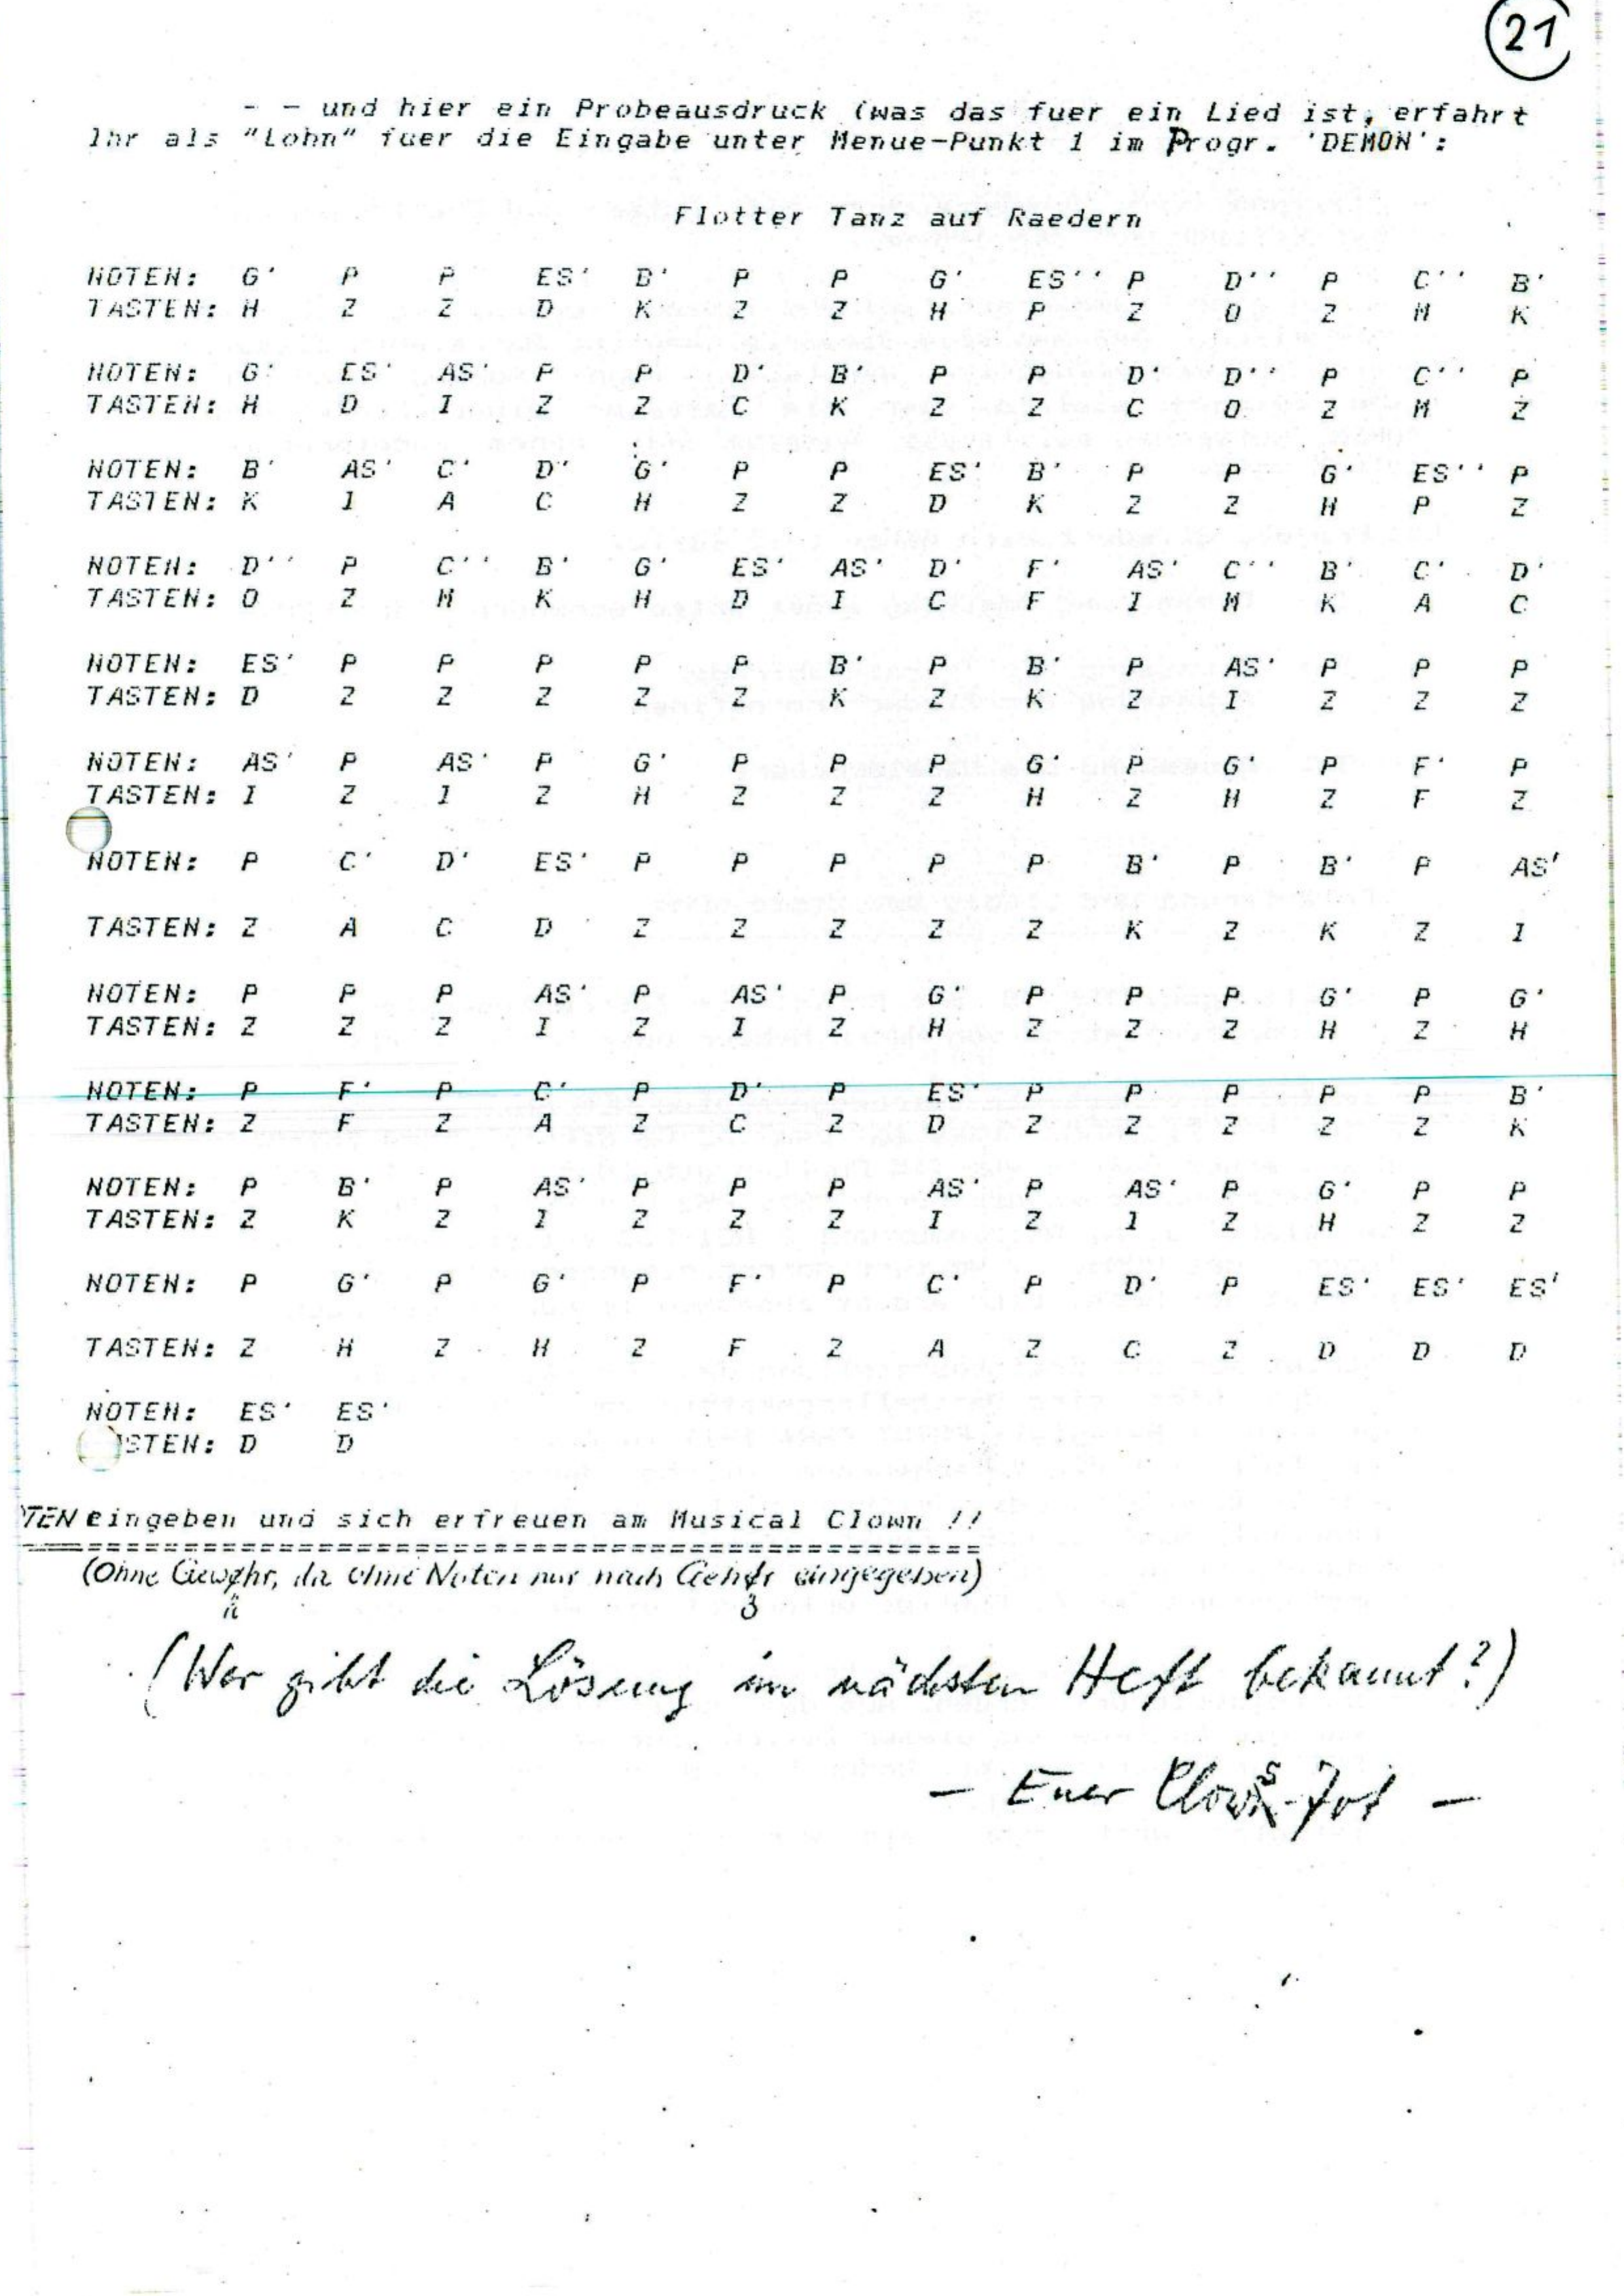 21
- - und hier ein Probeausdruck (was das fuer ein Lied ist, erfahrt
Ihr als "Lohn" fuer die Eingabe unter Menue-Punkt 1 im Progr. 'DEMON':
Flotter Tanz auf Raedern
NOTEN: G' P P ES' B' P P G' ES'' P D'' P C'' B'
TASTEN: H Z Z D K Z Z H P Z O Z M K
NOTEN: G' ES' AS' P P D' B' P P D' D'' P C'' P
TASTEN: H D I Z Z C K Z Z C O Z M Z
NOTEN: B' AS' C' D' G' P P ES' B' P P G' ES'' P
TASTEN: K I A C H Z Z D K Z Z H P Z
NOTEN: D'' P C'' B' G' ES' AS' D' F' AS' C'' B' C' D'
TASTEN: O Z M K H D I C F I M K A C
NOTEN: ES' P P P P P B' P B' P AS' P P P
TASTEN: D Z Z Z Z Z K Z K Z I Z Z Z
NOTEN: AS' P AS' P G' P P P G' P G' P F' P
TASTEN: I Z I Z H Z Z Z H Z H Z F Z
NOTEN: P C' D' ES' P P P P P B' P B' P AS'
TASTEN: Z A C D Z Z Z Z Z K Z K Z I
NOTEN: P P P AS' P AS' P G' P P P G' P G'
TASTEN: Z Z Z I Z I Z H Z Z Z H Z H
NOTEN: P F' P C' P D' P ES' P P P P P B'
TASTEN: Z F Z A Z C Z D Z Z Z Z Z K
NOTEN: P B' P AS' P P P AS' P AS' P G' P P
TASTEN: Z K Z I Z Z Z I Z I Z H Z Z
NOTEN: P G' P G' P F' P C' P D' P ES' ES' ES'
TASTEN: Z H Z H Z F Z A Z C Z D D D
NOTEN: ES' ES'
STEN: D D
TEN eingeben und sich erfreuen am Musical Clown !!
==============================================
(Ohne Gewähr, da ohne Noten nur nach Gehör eingegeben)
(Wer gibt die Lösung im nächsten Heft bekannt?)
- Euer Clows-Jot -